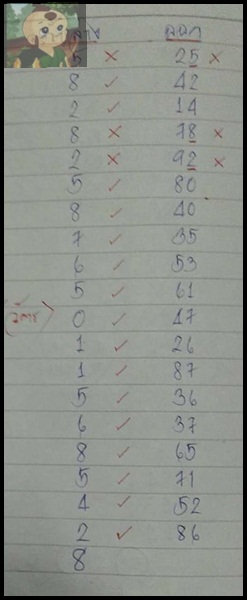 ออก
5 × 25 ×
8 ✓ 42
2 ✓ 14
8 × 78 ×
2 × 92 ×
5 ✓ 80
8 ✓ 40
7 ✓ 35
6 ✓ 53
5 ✓ 61
0 ✓ 47
1 ✓ 26
1 ✓ 87
5 ✓ 36
6 ✓ 37
8 ✓ 65
5 ✓ 71
4 ✓ 52
2 ✓ 86
8